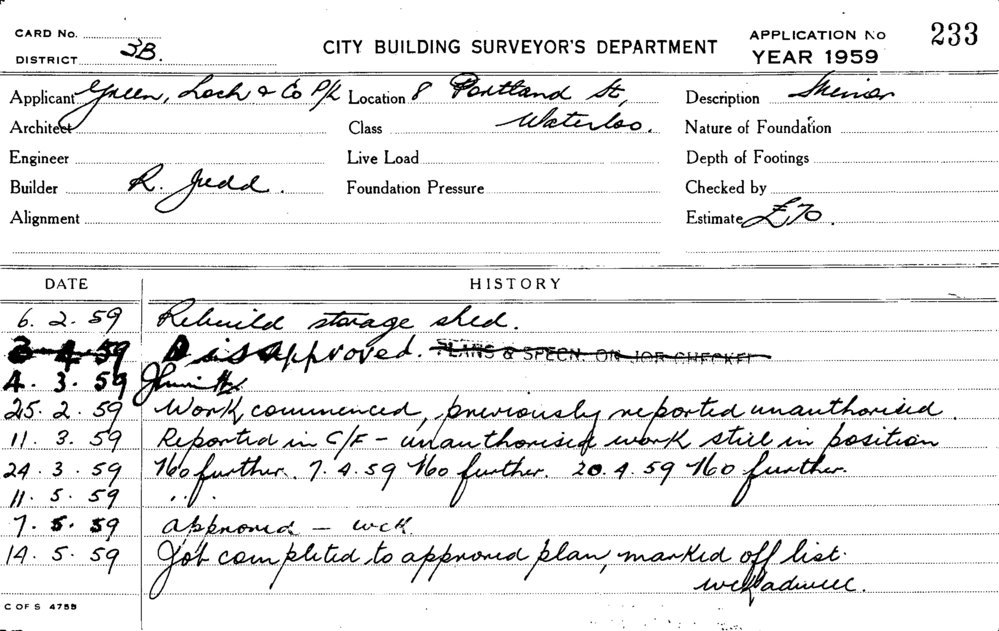 CARD No.
DISTRICT 3B.
CITY BUILDING SURVEYOR'S DEPARTMENT
APPLICATION No 233
YEAR 1959
Applicant Green, Loch & Co P/L Location 8 Portland St, Description
Architect Class Waterloo. Nature of Foundation
Engineer Live Load Depth of Footings
Builder R. Judd. Foundation Pressure Checked by
Alignment Estimate £70.
DATE HISTORY
6. 2. 59 Rebuild storage shed.
3 4 59 Disapproved. PLANS & SPECN. ON JOB CHECKED
4. 3. 59
25. 2. 59 Work commenced, previously reported unauthorised.
11. 3. 59 Reported in C/F - unauthorised work still in position
24. 3. 59 No further. 7. 4. 59 No further. 20. 4. 59 No further.
11. 5. 59 " .
7. 5. 59 approved - wck
14. 5. 59 Job completed to approved plan, marked off list.
C OF S 4755